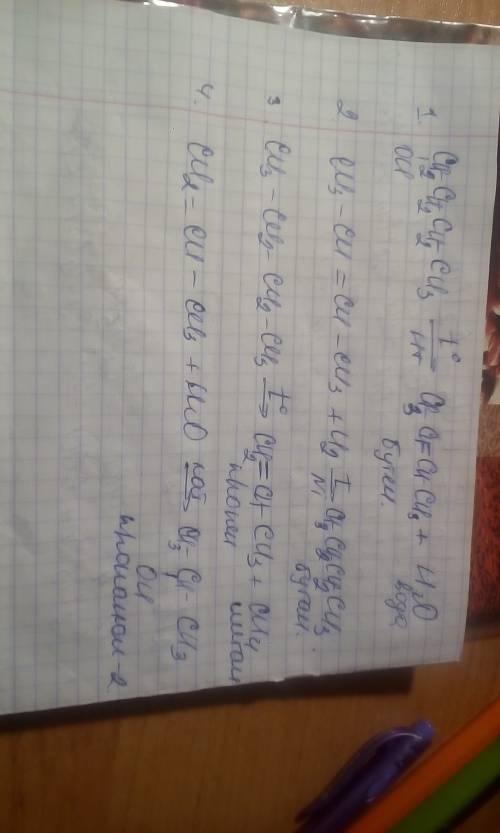 1. CH₂CH₂CH₂CH₃ →(t°, H⁺) CH₃CH=CHCH₃ + H₂O
OH бутен. вода
2. CH₃ – CH = CH – CH₃ + H₂ →(t, Ni) CH₃CH₂CH₂CH₃.
бутан.
3. CH₃ – CH₂ – CH₂ – CH₃ →(t°) CH₂=CH–CH₃ + CH₄
пропен метан
4. CH₂ = CH – CH₃ + HHO →(кат) CH₃–CH–CH₃
OH
пропанол-2